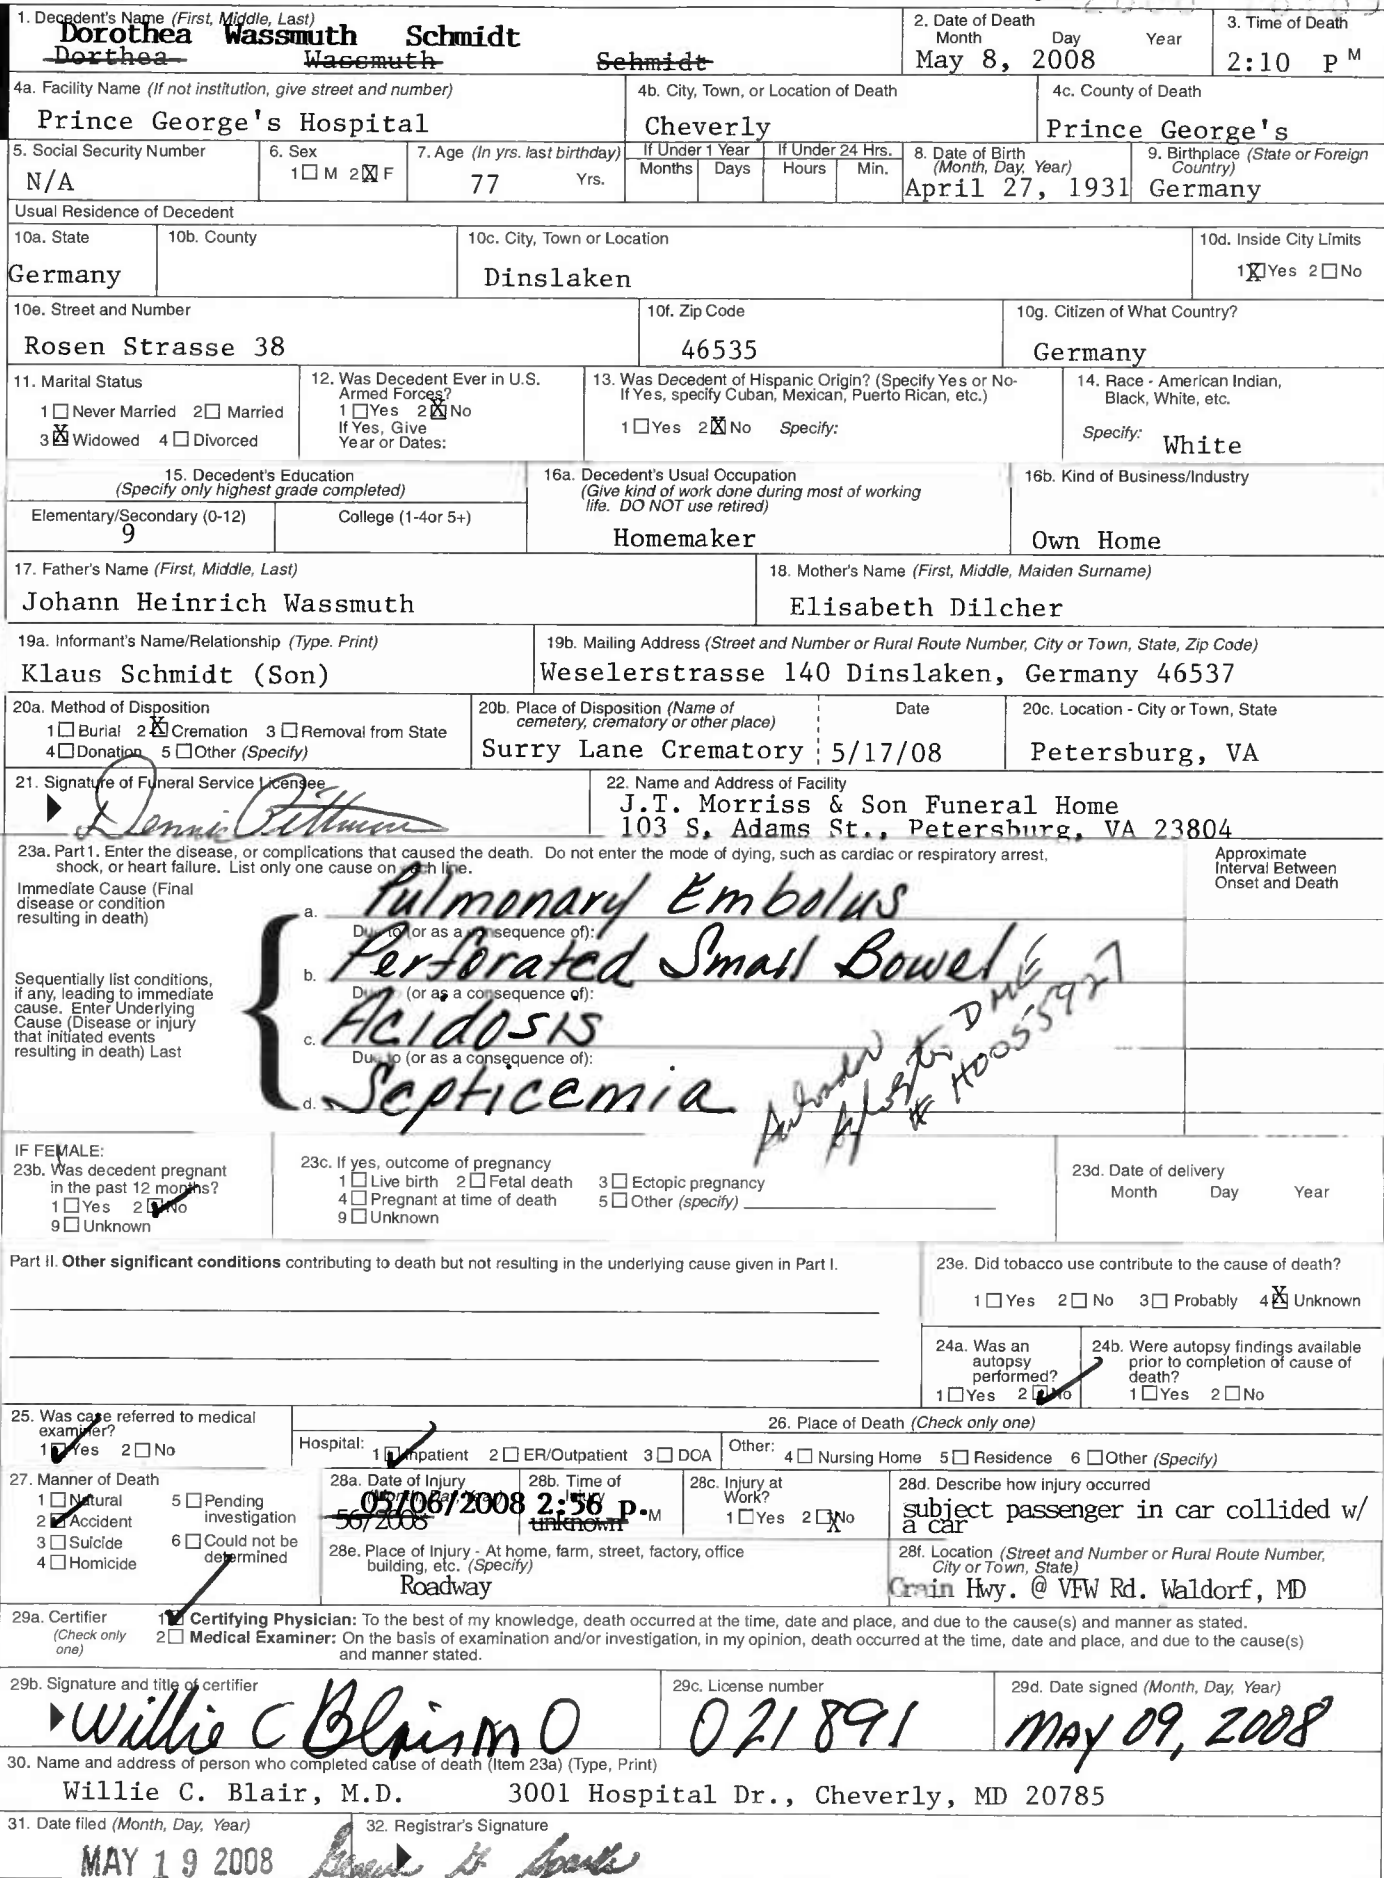 1. Decedent's Name (First, Middle, Last)
Dorothea Wassmuth Schmidt
Dorthea Wassmuth Schmidt
2. Date of Death
Month Day Year
May 8, 2008
3. Time of Death
2:10 P M
4a. Facility Name (If not institution, give street and number)
Prince George's Hospital
4b. City, Town, or Location of Death
Cheverly
4c. County of Death
Prince George's
5. Social Security Number
N/A
6. Sex
1 M 2 X F
7. Age (In yrs. last birthday)
77 Yrs.
If Under 1 Year
Months Days
If Under 24 Hrs.
Hours Min.
8. Date of Birth
(Month, Day, Year)
April 27, 1931
9. Birthplace (State or Foreign
Country)
Germany
Usual Residence of Decedent
10a. State
Germany
10b. County
10c. City, Town or Location
Dinslaken
10d. Inside City Limits
1 X Yes 2 No
10e. Street and Number
Rosen Strasse 38
10f. Zip Code
46535
10g. Citizen of What Country?
Germany
11. Marital Status
1 Never Married 2 Married
3 X Widowed 4 Divorced
12. Was Decedent Ever in U.S.
Armed Forces?
1 Yes 2 X No
If Yes, Give
Year or Dates:
13. Was Decedent of Hispanic Origin? (Specify Yes or No-
If Yes, specify Cuban, Mexican, Puerto Rican, etc.)
1 Yes 2 X No Specify:
14. Race - American Indian,
Black, White, etc.
Specify: White
15. Decedent's Education
(Specify only highest grade completed)
Elementary/Secondary (0-12) College (1-4or 5+)
9
16a. Decedent's Usual Occupation
(Give kind of work done during most of working
life. DO NOT use retired)
Homemaker
16b. Kind of Business/Industry
Own Home
17. Father's Name (First, Middle, Last)
Johann Heinrich Wassmuth
18. Mother's Name (First, Middle, Maiden Surname)
Elisabeth Dilcher
19a. Informant's Name/Relationship (Type. Print)
Klaus Schmidt (Son)
19b. Mailing Address (Street and Number or Rural Route Number, City or Town, State, Zip Code)
Weselerstrasse 140 Dinslaken, Germany 46537
20a. Method of Disposition
1 Burial 2 X Cremation 3 Removal from State
4 Donation 5 Other (Specify)
20b. Place of Disposition (Name of
cemetery, crematory or other place)
Surry Lane Crematory
Date
5/17/08
20c. Location - City or Town, State
Petersburg, VA
21. Signature of Funeral Service Licensee
Dennis Pittman
22. Name and Address of Facility
J.T. Morriss & Son Funeral Home
103 S. Adams St., Petersburg, VA 23804
23a. Part 1. Enter the disease, or complications that caused the death. Do not enter the mode of dying, such as cardiac or respiratory arrest,
shock, or heart failure. List only one cause on each line.
Approximate
Interval Between
Onset and Death
Immediate Cause (Final
disease or condition
resulting in death)
a. Pulmonary Embolus
Due to (or as a consequence of):
Sequentially list conditions,
if any, leading to immediate
cause. Enter Underlying
Cause (Disease or injury
that initiated events
resulting in death) Last
b. Perforated Small Bowel
Due to (or as a consequence of):
c. Acidosis
Due to (or as a consequence of):
d. Septicemia
DME
# H0055927
IF FEMALE:
23b. Was decedent pregnant
in the past 12 months?
1 Yes 2 No
9 Unknown
23c. If yes, outcome of pregnancy
1 Live birth 2 Fetal death 3 Ectopic pregnancy
4 Pregnant at time of death 5 Other (specify)
9 Unknown
23d. Date of delivery
Month Day Year
Part II. Other significant conditions contributing to death but not resulting in the underlying cause given in Part I.
23e. Did tobacco use contribute to the cause of death?
1 Yes 2 No 3 Probably 4 X Unknown
24a. Was an
autopsy
performed?
1 Yes 2 No
24b. Were autopsy findings available
prior to completion of cause of
death?
1 Yes 2 No
25. Was case referred to medical
examiner?
1 Yes 2 No
26. Place of Death (Check only one)
Hospital: 1 Inpatient 2 ER/Outpatient 3 DOA Other: 4 Nursing Home 5 Residence 6 Other (Specify)
27. Manner of Death
1 Natural 5 Pending
investigation
2 Accident
3 Suicide 6 Could not be
determined
4 Homicide
28a. Date of Injury
(Month, Day, Year)
05/06/2008
56/2008
28b. Time of
Injury
2:56 p. M
unknown
28c. Injury at
Work?
1 Yes 2 X No
28d. Describe how injury occurred
subject passenger in car collided w/
a car
28e. Place of Injury - At home, farm, street, factory, office
building, etc. (Specify)
Roadway
28f. Location (Street and Number or Rural Route Number,
City or Town, State)
Crain Hwy. @ VFW Rd. Waldorf, MD
29a. Certifier
(Check only
one)
1 Certifying Physician: To the best of my knowledge, death occurred at the time, date and place, and due to the cause(s) and manner as stated.
2 Medical Examiner: On the basis of examination and/or investigation, in my opinion, death occurred at the time, date and place, and due to the cause(s)
and manner stated.
29b. Signature and title of certifier
Willie C Blair MD
29c. License number
021891
29d. Date signed (Month, Day, Year)
May 09, 2008
30. Name and address of person who completed cause of death (Item 23a) (Type, Print)
Willie C. Blair, M.D. 3001 Hospital Dr., Cheverly, MD 20785
31. Date filed (Month, Day, Year)
MAY 19 2008
32. Registrar's Signature